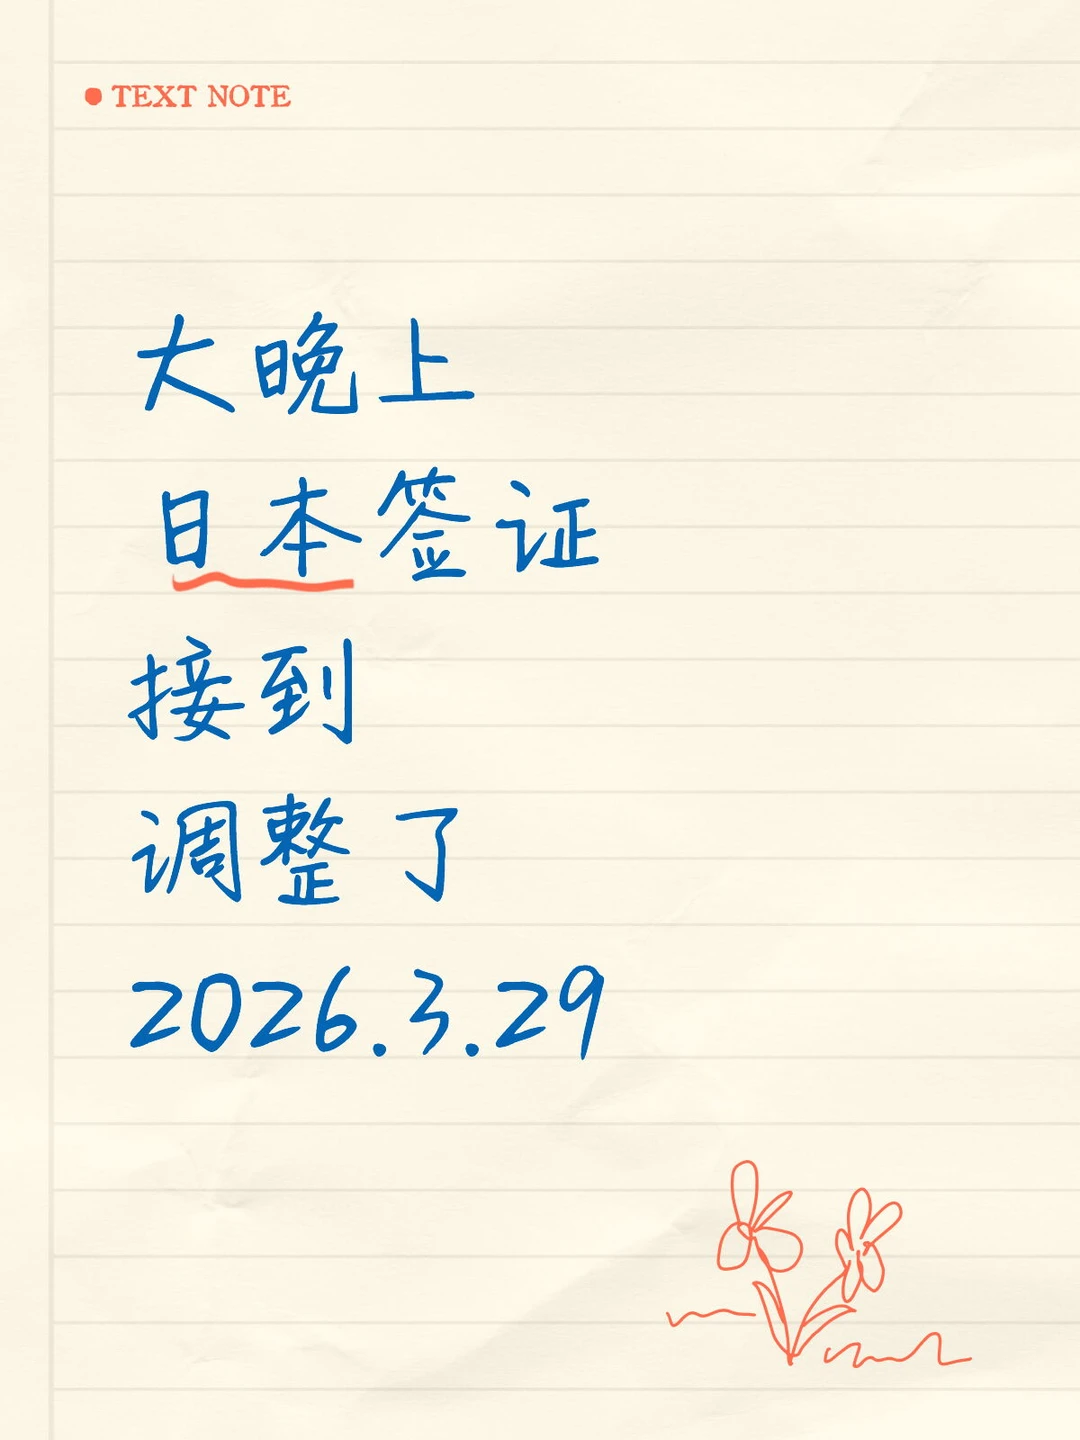 TEXT NOTE
大晚上
日本签证
接到
调整了
2026.3.29